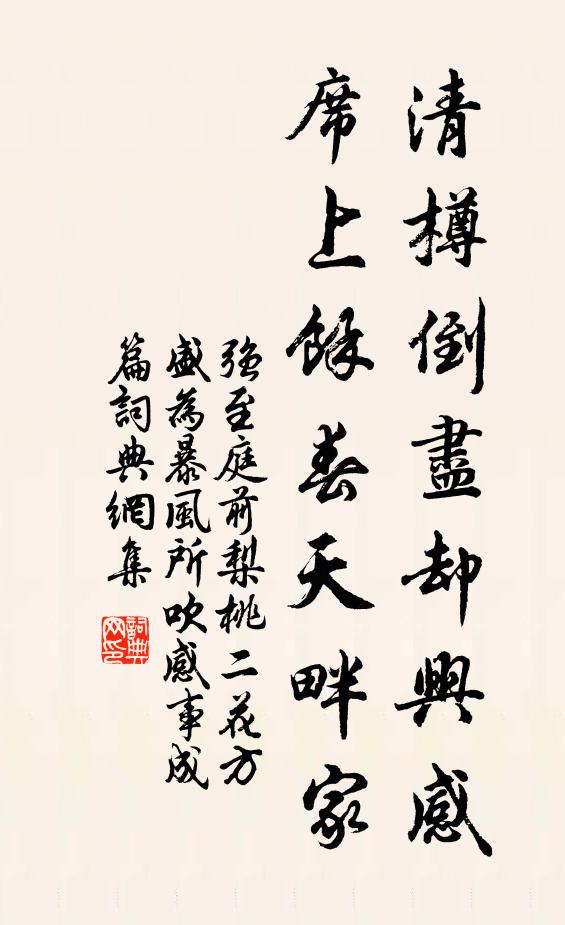 清樽倒盡却興感
席上餘春天畔家
强至庭前梨桃二花方
盛為暴風所吹感事成
篇詞典網集
詞典
网印